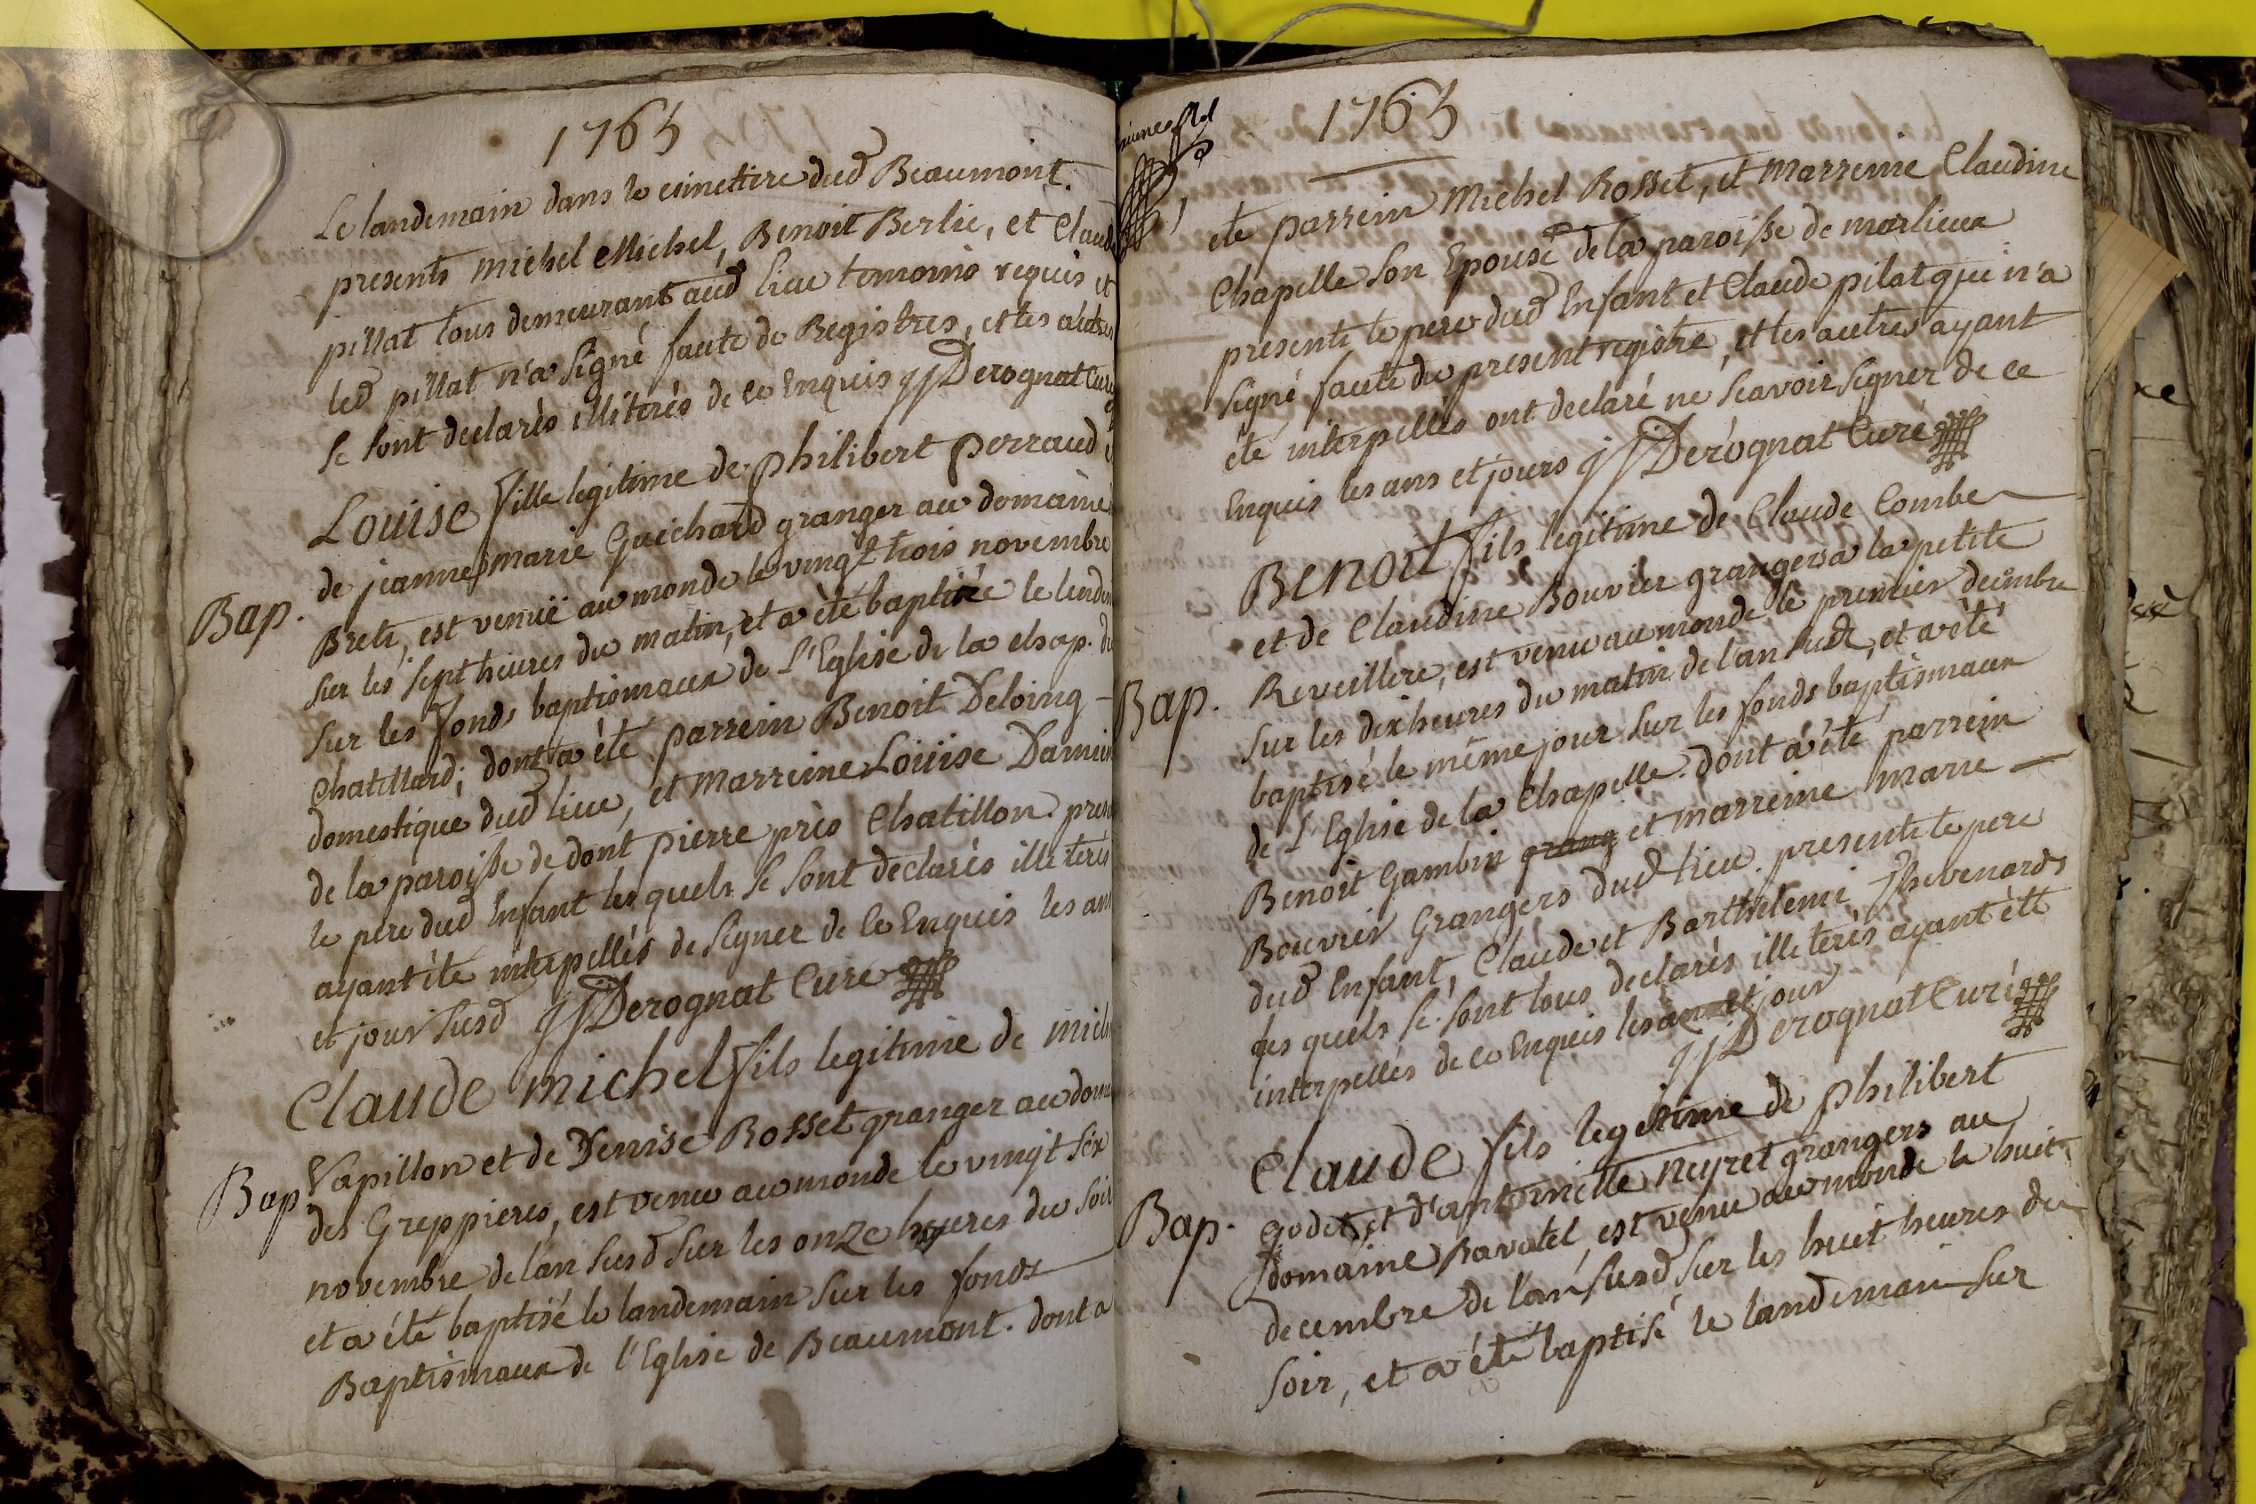 1765
Le landemain dans le cimettiere dud Beaumont.
presents michel Michel, Benoit Berlie, et Claude
pillat tous demeurant aud lieu temoins requis et
led pillat n'a signé faute de Registres, et les autres
se sont declarés illiterés de ce Enquis JJDerognat Curé
Louise fille legitime de philibert perraud et
de jeanne marie Guichard granger au domaine
Bap.
Breti, est venuë au monde le vingt trois novembre
sur les sept heures du matin, et a èté baptizée le lendem
sur les fonds baptismaux de L'Eglise de la chap. du
Chatillard; dont a èté parrein Benoit Deloing -
domestique dud lieu, et Marreine Loüise Damien
de la paroisse de dont pierre près Chatillon. present
le pere dud Enfant les quels se sont declarés illiterés
ayant èté interpellés de signer de ce Enquis les ans
et jour susd JJDerognat Curé
Claude michel fils legitime de michel
Bap.
Papillon et de Denise Rosset granger au domaine
des Greppieres, est venu au monde le vingt six
novembre de lan susd sur les onze heures du soir
et a été baptisé le landemain sur les fonds
Baptismaux de l'Eglise de Beaumont. dont a
1765
été parrein Michel Rosset, et Marreine Claudine
Chapelle son Epouse de la paroisse de marlieux
presents le pere dud Enfant et Claude pilat qui n'a
signé faute du present registre, et les autres ayant
été interpellés ont declaré ne sçavoir signer de ce
Enquis les ans et jours JJDerognat Curé
Benoit fils legitime de Claude Combe
et de Claudine Bouvier grangers a la petite
Bap.
Reveillere, est venu au monde le premier decembre
sur les dix heures du matin de l'an susd, et a été
baptisé le même jour sur les fonds baptismaux
de L'Eglise de la Chapelle. dont a été parrein
Benoit Gambin grang et marreine marie
Bouvier Grangers dud lieu. presents le pere
dud Enfant, Claude et Barthelemi Thevenards
les quels se sont tous declarés illiterés ayant èté
interpellés de ce Enquis les an et jour
JJDerognat Curé
Claude fils legitime de philibert
Bap.
godet, et d'antoinette neyret grangers au
domaine Ravatel, est venu au monde le huit
decembre de l'an susd sur les huit heures du
soir, et a été baptisé le landemain sur